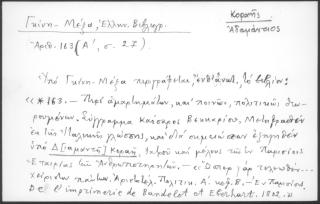 Γκίνη - Μέξα, Ἑλλην. Βιβλιογρ.
Ἀριθ. 163 (Α', σ. 27).
Κοραῆς
Ἀδαμάντιος
Ὑπὸ Γκίνη - Μέξα περιγράφεται, τὸ βιβλίον:
«*163. — Περὶ ἁμαρτημάτων, καὶ ποινῶν, πολιτικῶς θεω-
ρουμένων. Σύγγραμμα Καίσαρος Βεκκαρίου. Μεταφρασθὲν
ἐκ τῆς Ἰταλικῆς γλώσσης, καὶ διὰ σημειώσεων ἐξηγηθὲν
ὑπὸ Δ[ιαμαντῆ] Κοραῆ, Ἰατροῦ καὶ μέλους τῶν Παρισίων
Ἑταιρίας τῶν Ἀνθρωποτηρητῶν. — «Ὥσπερ γὰρ τελεωθὲν...
χείριστον πάντων. Ἀριστοτέλ. Πολιτικ. Α', κεφ. Β. — Ἐν Παρισίοις,
De l'imprimerie de Baudelot et Eberhart. 1802.